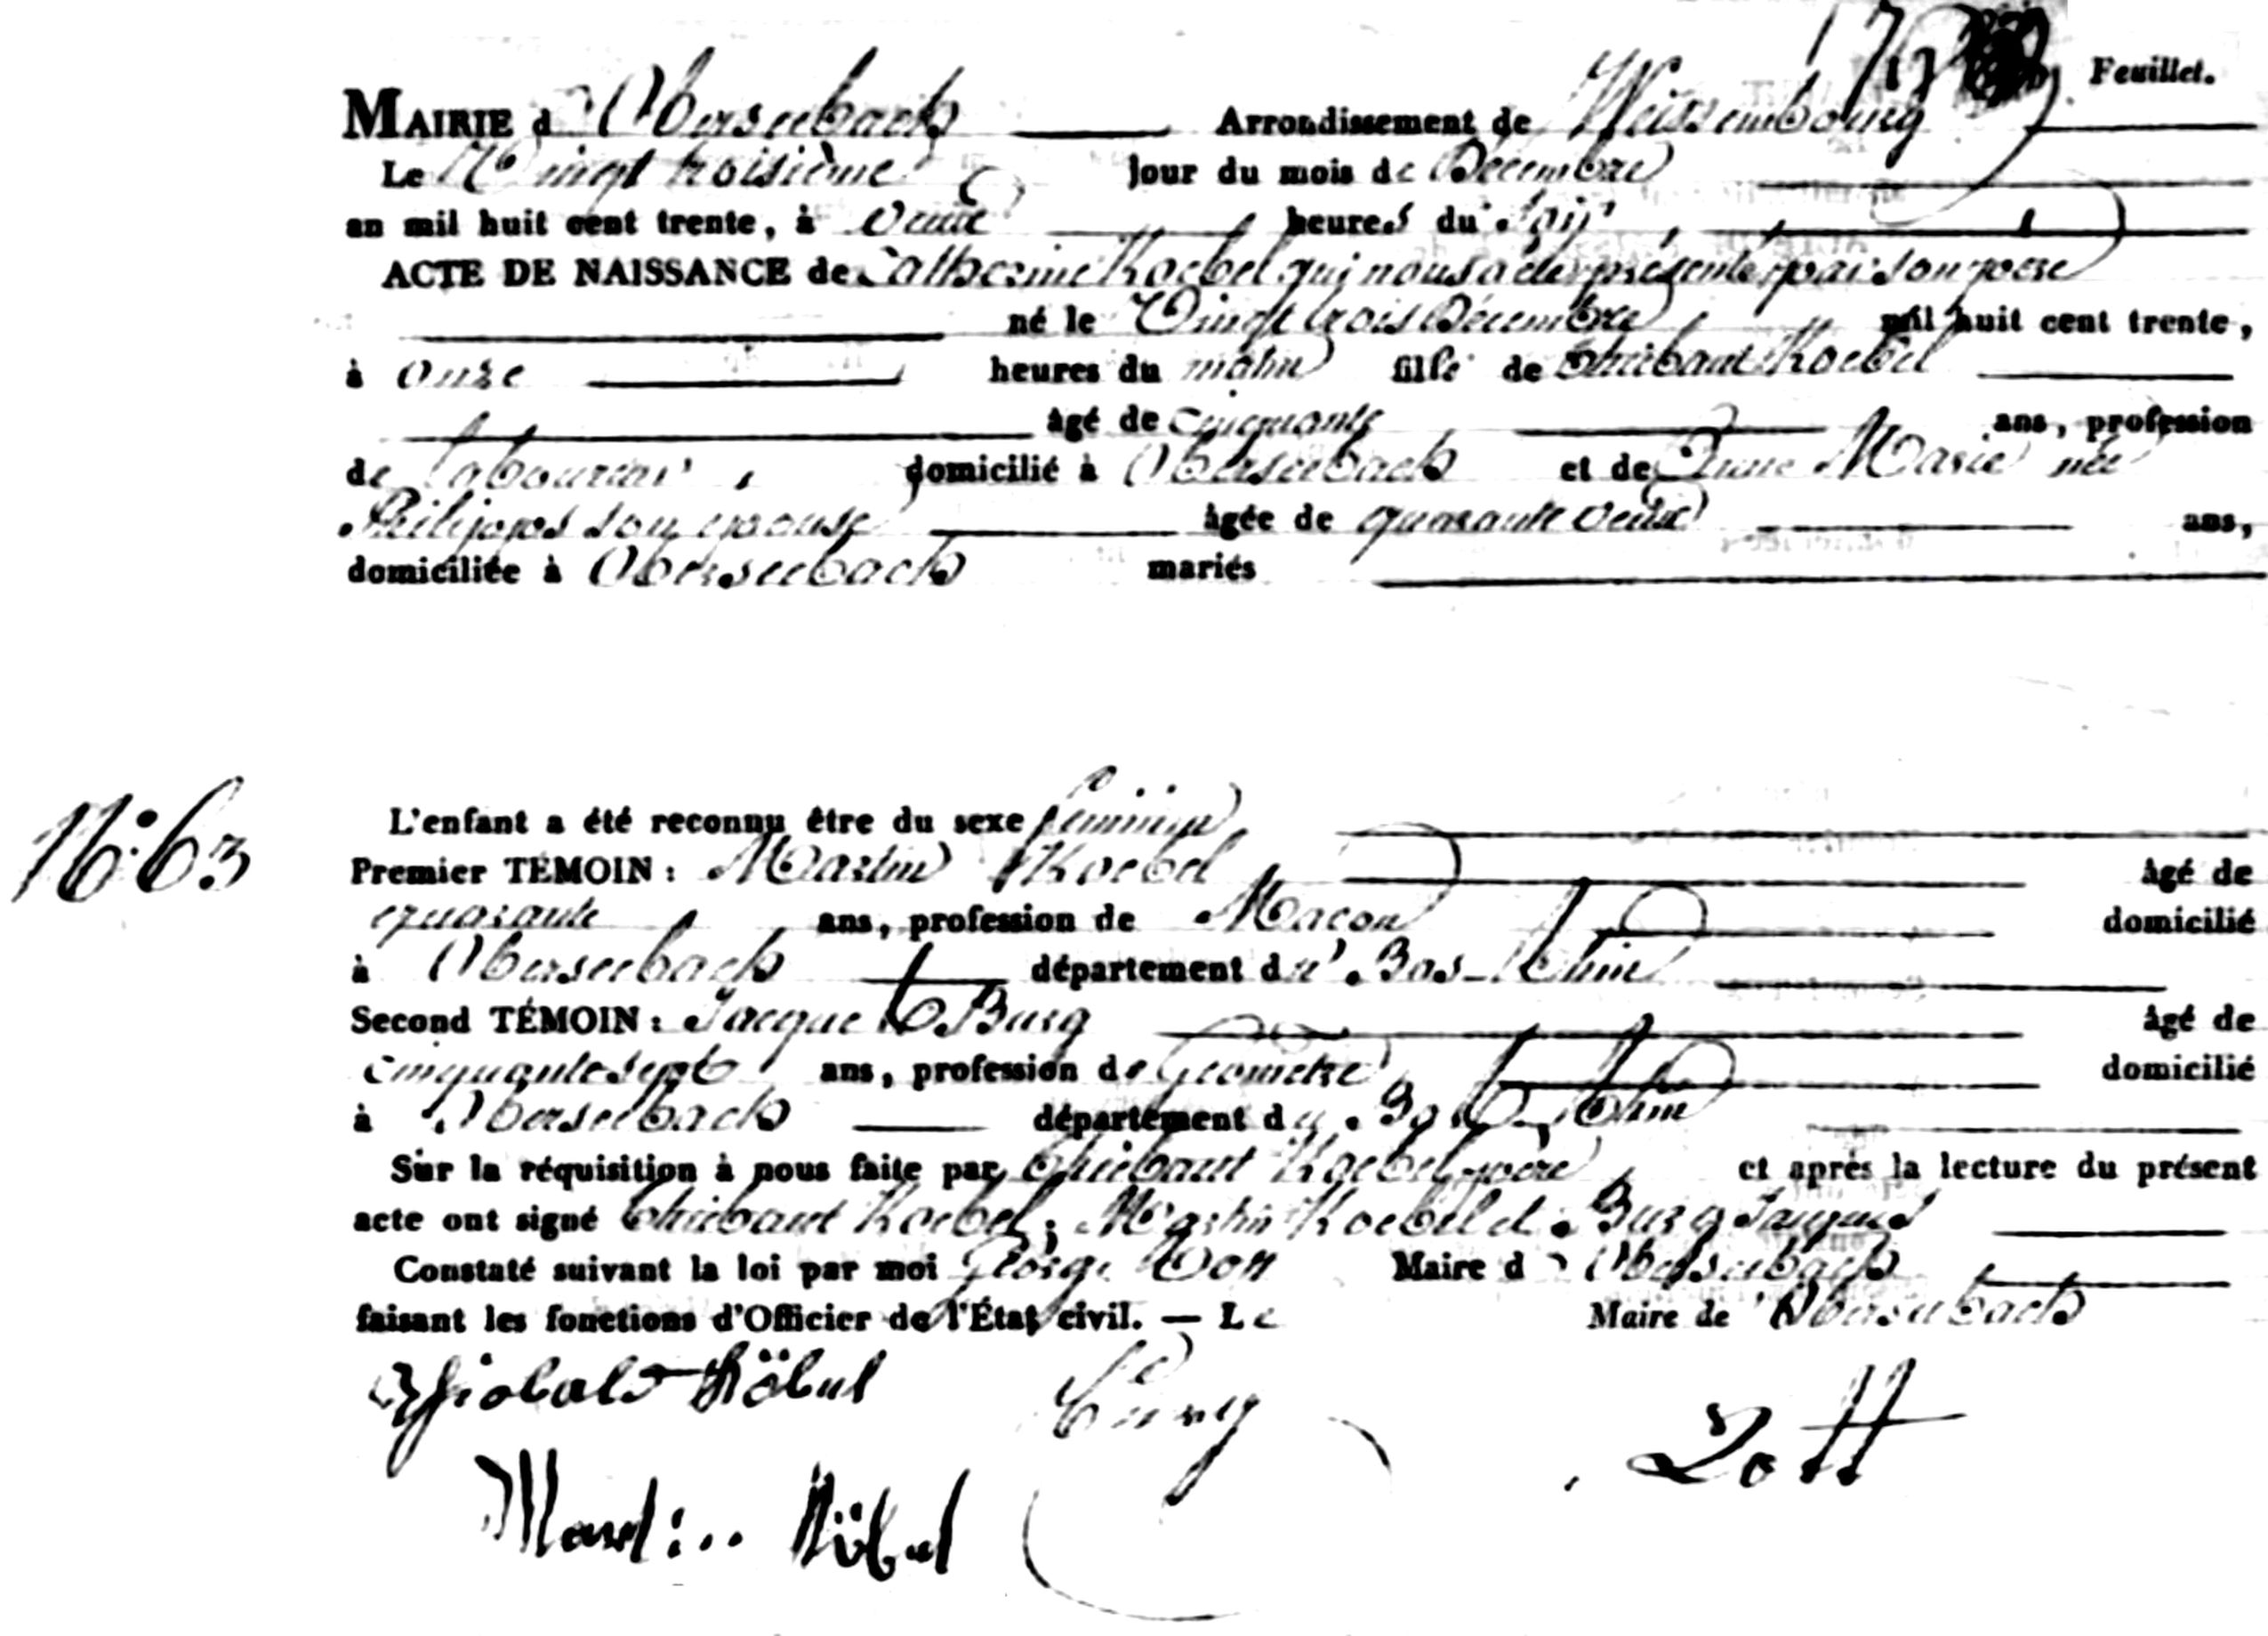 Feuillet.
MAIRIE d'Oberseebach Arrondissement de Weissembourg
Le Vingt troisième jour du mois de Décembre
an mil huit cent trente, à deux heures du soir,
ACTE DE NAISSANCE de Catherine Koebel qui nous a été présenté par son père
né le Vingt trois Décembre mil huit cent trente,
à onze heures du matin fille de Thiébaut Koebel
âgé de cinquante ans, profession
de laboureur, domicilié à Oberseebach et de Anne Marie née
Philipps son épouse âgée de quarante deux ans,
domiciliée à Oberseebach mariés
L'enfant a été reconnu être du sexe féminin
N.° 63
Premier TÉMOIN : Martin Koebel âgé de
quarante ans, profession de Macon domicilié
à Oberseebach département du Bas-Rhin
Second TÉMOIN : Jacque Burg âgé de
cinquante sept ans, profession de Géometre domicilié
à Oberseebach département du Bas-Rhin
Sur la réquisition à nous faite par Thiebaut Koebel père et après la lecture du présent
acte ont signé Thiebaut Koebel, Martin Koebel et Burg Jacques
Constaté suivant la loi par moi George Dott Maire d'Oberseebach
faisant les fonctions d'Officier de l'État civil. — Le Maire de Oberseebach
Köbel Burg Dott
Martin Köbel